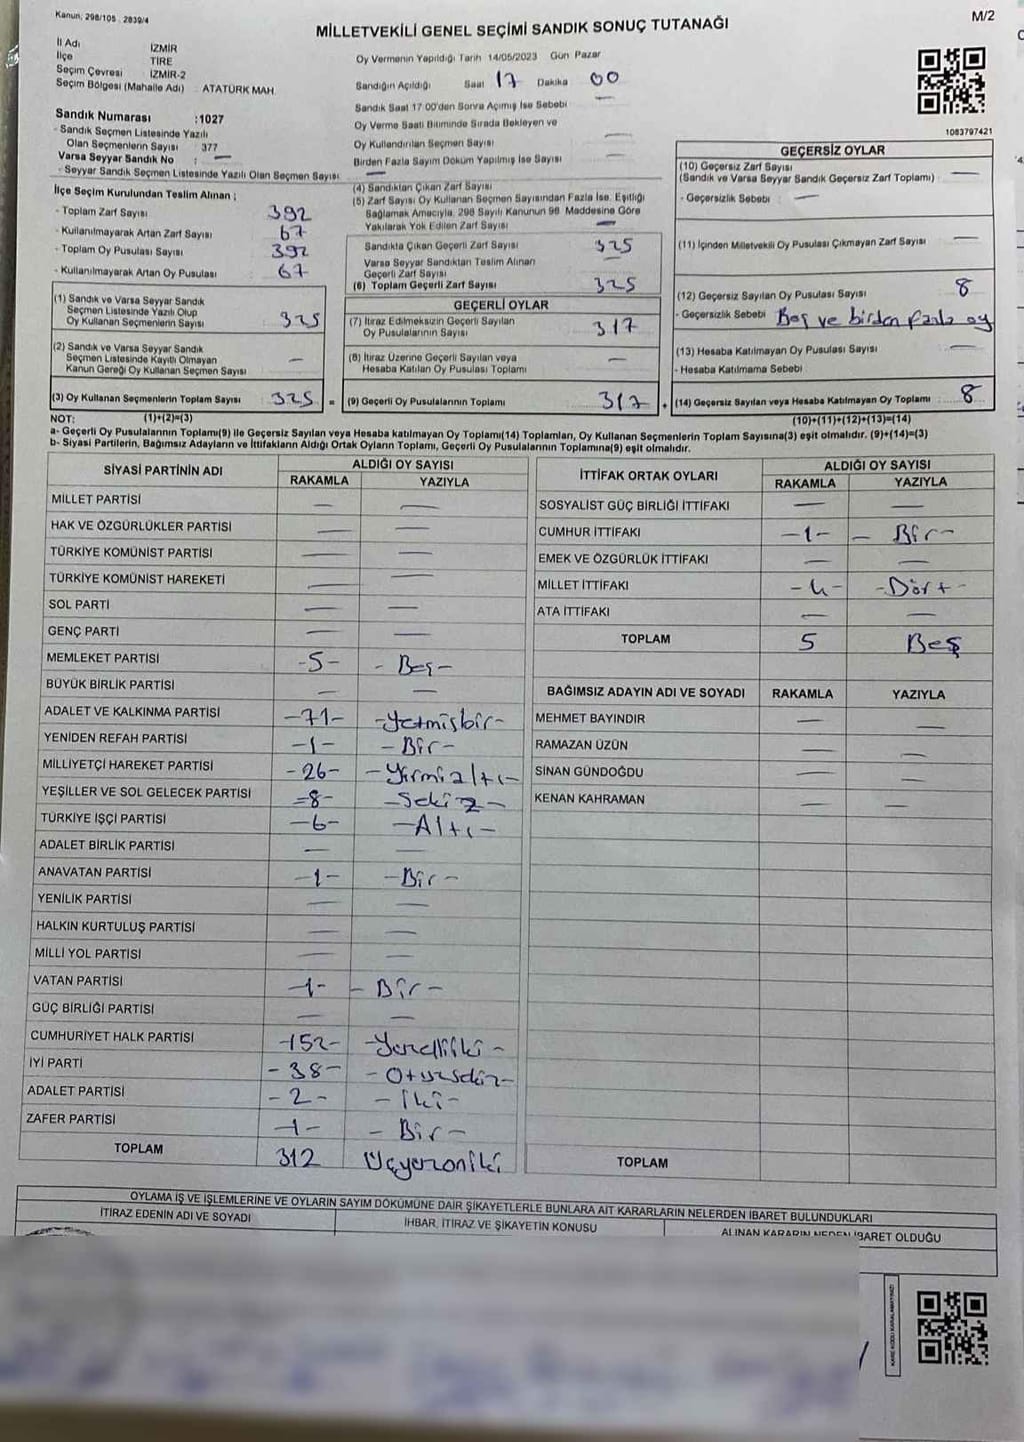 Kanun; 298/105 , 2839/4
M/2
MİLLETVEKİLİ GENEL SEÇİMİ SANDIK SONUÇ TUTANAĞI
İl Adı İZMİR
İlçe TİRE
Seçim Çevresi İZMİR-2
Seçim Bölgesi (Mahalle Adı) : ATATÜRK MAH.
Oy Vermenin Yapıldığı Tarih 14/05/2023 Gün Pazar
Sandığın Açıldığı Saat 17 Dakika 00
Sandık Saat 17 00'den Sonra Açımış İse Sebebi —
Oy Verme Saati Bitiminde Sırada Bekleyen ve
Oy Kullandırılan Seçmen Sayısı —
Birden Fazla Sayım Döküm Yapılmış İse Sayısı —
1083797421
Sandık Numarası :1027
- Sandık Seçmen Listesinde Yazılı
Olan Seçmenlerin Sayısı 377
Varsa Seyyar Sandık No : —
- Seyyar Sandık Seçmen Listesinde Yazılı Olan Seçmen Sayısı —
İlçe Seçim Kurulundan Teslim Alınan ;
- Toplam Zarf Sayısı 392
- Kullanılmayarak Artan Zarf Sayısı 67
- Toplam Oy Pusulası Sayısı 392
- Kullanılmayarak Artan Oy Pusulası 67
(1) Sandık ve Varsa Seyyar Sandık
Seçmen Listesinde Yazılı Olup
Oy Kullanan Seçmenlerin Sayısı 325
(2) Sandık ve Varsa Seyyar Sandık
Seçmen Listesinde Kayıtlı Olmayan
Kanun Gereği Oy Kullanan Seçmen Sayısı —
(3) Oy Kullanan Seçmenlerin Toplam Sayısı 325 =
(4) Sandıktan Çıkan Zarf Sayısı
(5) Zarf Sayısı Oy Kullanan Seçmen Sayısından Fazla İse, Eşitliği
Sağlamak Amacıyla, 298 Sayılı Kanunun 98. Maddesine Göre
Yakılarak Yok Edilen Zarf Sayısı —
Sandıkta Çıkan Geçerli Zarf Sayısı 325
Varsa Seyyar Sandıktan Teslim Alınan
Geçerli Zarf Sayısı —
(6) Toplam Geçerli Zarf Sayısı 325
GEÇERLİ OYLAR
(7) İtiraz Edilmeksizin Geçerli Sayılan
Oy Pusulalarının Sayısı 317
(8) İtiraz Üzerine Geçerli Sayılan veya
Hesaba Katılan Oy Pusulası Toplamı —
(9) Geçerli Oy Pusulalarının Toplamı 317 +
GEÇERSİZ OYLAR
(10) Geçersiz Zarf Sayısı
(Sandık ve Varsa Seyyar Sandık Geçersiz Zarf Toplamı) —
- Geçersizlik Sebebi : —
(11) İçinden Milletvekili Oy Pusulası Çıkmayan Zarf Sayısı —
(12) Geçersiz Sayılan Oy Pusulası Sayısı 8
- Geçersizlik Sebebi Boş ve birden fazla oy
(13) Hesaba Katılmayan Oy Pusulası Sayısı —
- Hesaba Katılmama Sebebi
(14) Geçersiz Sayılan veya Hesaba Katılmayan Oy Toplamı 8
NOT: (1)+(2)=(3) (10)+(11)+(12)+(13)=(14)
a- Geçerli Oy Pusulalarının Toplamı(9) ile Geçersiz Sayılan veya Hesaba katılmayan Oy Toplamı(14) Toplamları, Oy Kullanan Seçmenlerin Toplam Sayısına(3) eşit olmalıdır. (9)+(14)=(3)
b- Siyasi Partilerin, Bağımsız Adayların ve İttifakların Aldığı Ortak Oyların Toplamı, Geçerli Oy Pusulalarının Toplamına(9) eşit olmalıdır.
SİYASİ PARTİNİN ADI ALDIĞI OY SAYISI
RAKAMLA YAZIYLA
MİLLET PARTİSİ — —
HAK VE ÖZGÜRLÜKLER PARTİSİ — —
TÜRKİYE KOMÜNİST PARTİSİ — —
TÜRKİYE KOMÜNİST HAREKETİ — —
SOL PARTİ — —
GENÇ PARTİ — —
MEMLEKET PARTİSİ -5- - Beş -
BÜYÜK BİRLİK PARTİSİ — —
ADALET VE KALKINMA PARTİSİ -71- -Yetmişbir-
YENİDEN REFAH PARTİSİ -1- - Bir -
MİLLİYETÇİ HAREKET PARTİSİ -26- -Yirmialtı-
YEŞİLLER VE SOL GELECEK PARTİSİ =8- -Sekiz-
TÜRKİYE İŞÇİ PARTİSİ -6- -Altı-
ADALET BİRLİK PARTİSİ — —
ANAVATAN PARTİSİ -1- -Bir-
YENİLİK PARTİSİ — —
HALKIN KURTULUŞ PARTİSİ — —
MİLLİ YOL PARTİSİ — —
VATAN PARTİSİ -1- - Bir -
GÜÇ BİRLİĞİ PARTİSİ — —
CUMHURİYET HALK PARTİSİ -152- -Yüzelliiki-
İYİ PARTİ -38- -Otuzsekiz-
ADALET PARTİSİ -2- - İki -
ZAFER PARTİSİ -1- - Bir -
TOPLAM 312 Üçyüzoniki
İTTİFAK ORTAK OYLARI ALDIĞI OY SAYISI
RAKAMLA YAZIYLA
SOSYALİST GÜÇ BİRLİĞİ İTTİFAKI — —
CUMHUR İTTİFAKI -1- - Bir -
EMEK VE ÖZGÜRLÜK İTTİFAKI — —
MİLLET İTTİFAKI -4- -Dört-
ATA İTTİFAKI — —
TOPLAM 5 Beş
BAĞIMSIZ ADAYIN ADI VE SOYADI RAKAMLA YAZIYLA
MEHMET BAYINDIR — —
RAMAZAN ÜZÜN — —
SİNAN GÜNDOĞDU — —
KENAN KAHRAMAN — —
TOPLAM
OYLAMA İŞ VE İŞLEMLERİNE VE OYLARIN SAYIM DÖKÜMÜNE DAİR ŞİKAYETLERLE BUNLARA AİT KARARLARIN NELERDEN İBARET BULUNDUKLARI
İTİRAZ EDENİN ADI VE SOYADI İHBAR, İTİRAZ VE ŞİKAYETİN KONUSU ALINAN KARARIN NEDEN İBARET OLDUĞU
KARE KODU KARALAMAYINIZ!